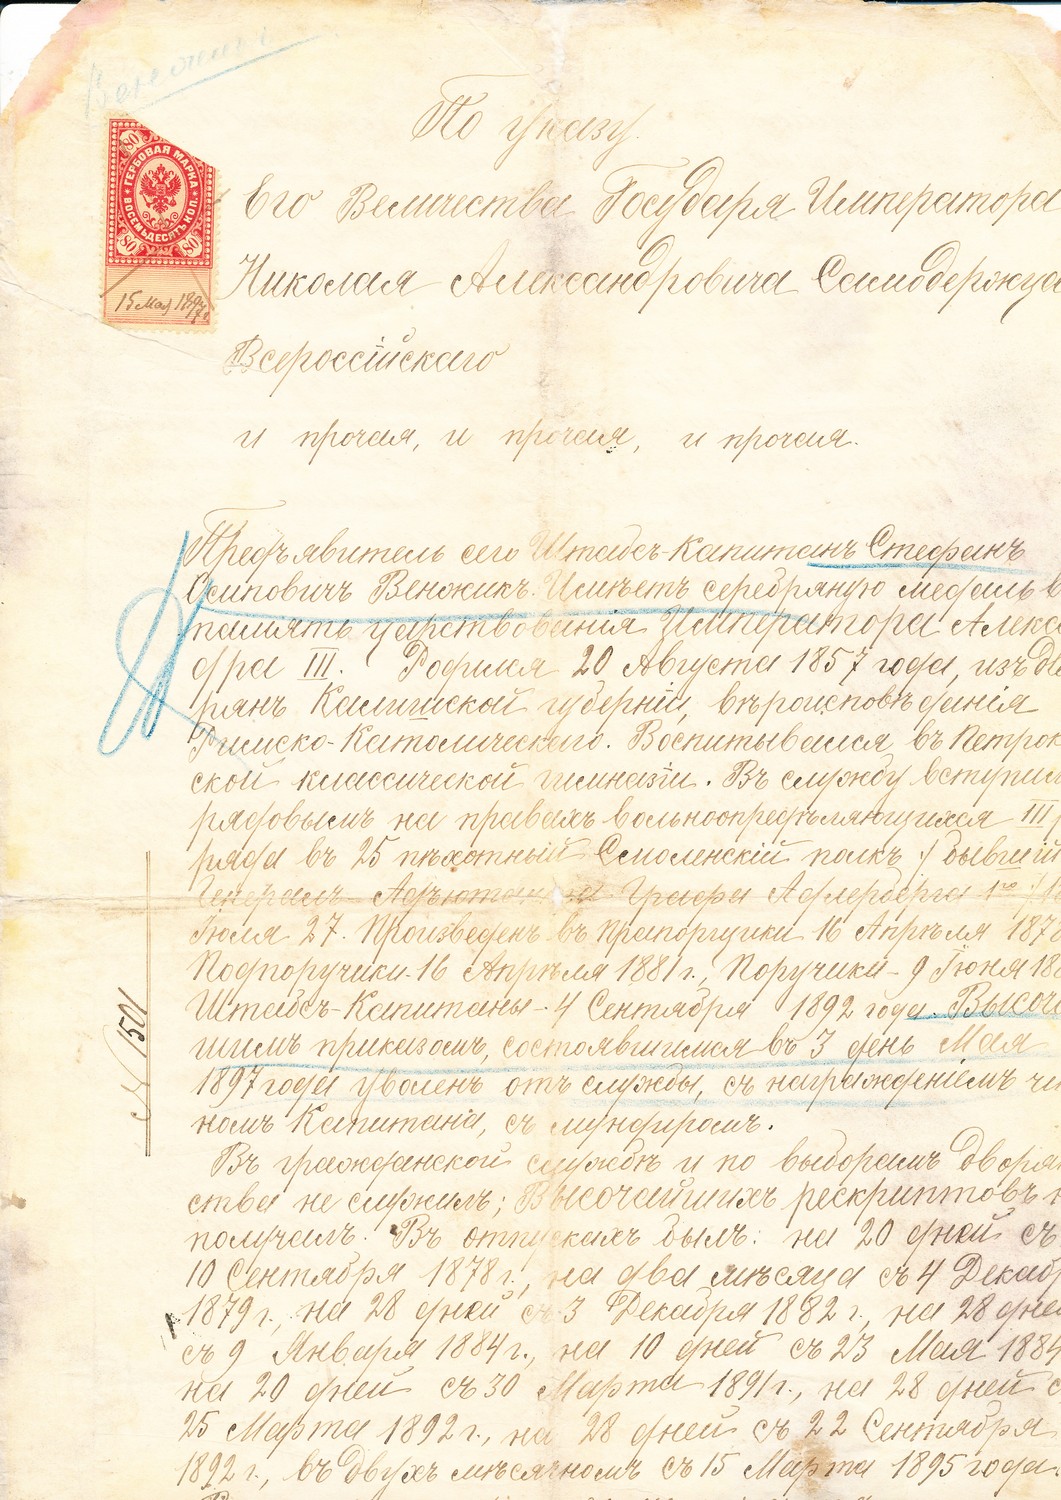 80
80
ГЕРБОВАЯ МАРКА
ВОСЕМЬДЕСЯТЪ КОП.
80
80
15 Мая 1897 г.
По указу
Его Величества Государя Императора
Николая Александровича Самодержца
Всероссійскаго
и прочая, и прочая, и прочая.
Предъявитель сего Штабсъ-Капитанъ Стефанъ
Осиповичъ Венжикъ. Имѣетъ серебряную медаль в
память царствованія Императора Алекса
дра III. Родился 20 Августа 1857 года, изъ дво
рянъ Калишской губерніи, вѣроисповѣданія
Римско-Католическаго. Воспитывался въ Петрок
ской классической гимназіи. Въ службу вступил
рядовымъ на правахъ вольноопредѣляющихся III р
ряда въ 25 пѣхотный Смоленскій полкъ /бывшій
Генералъ-Адъютанта Графа Адлерберга 1го/
Іюля 27. Произведенъ въ Прапорщики 16 Апрѣля 187
Подпоручики-16 Апрѣля 1881 г., Поручики-9 Іюня 188
Штабсъ-Капитаны-4 Сентября 1892 года. Высочай
шимъ приказомъ, состоявшимся въ 3 день Мая
1897 года уволенъ отъ службы, съ награжденіемъ чи
номъ Капитана, съ мундиромъ.
№ 1501
Въ гражданской службѣ и по выборамъ дворян
ства не служилъ; Высочайшихъ рескриптовъ н
получалъ. Въ отпускахъ былъ: на 20 дней съ
10 Сентября 1878 г., на два мѣсяца съ 4 Декабр
1879 г., на 28 дней съ 3 Декабря 1882 г., на 28 дне
съ 9 Января 1884 г., на 10 дней съ 23 Мая 1884
на 20 дней съ 30 Марта 1891 г., на 28 дней с
25 Марта 1892 г., на 28 дней съ 22 Сентября
1892 г., въ двухъ мѣсячномъ съ 15 Марта 1895 года.